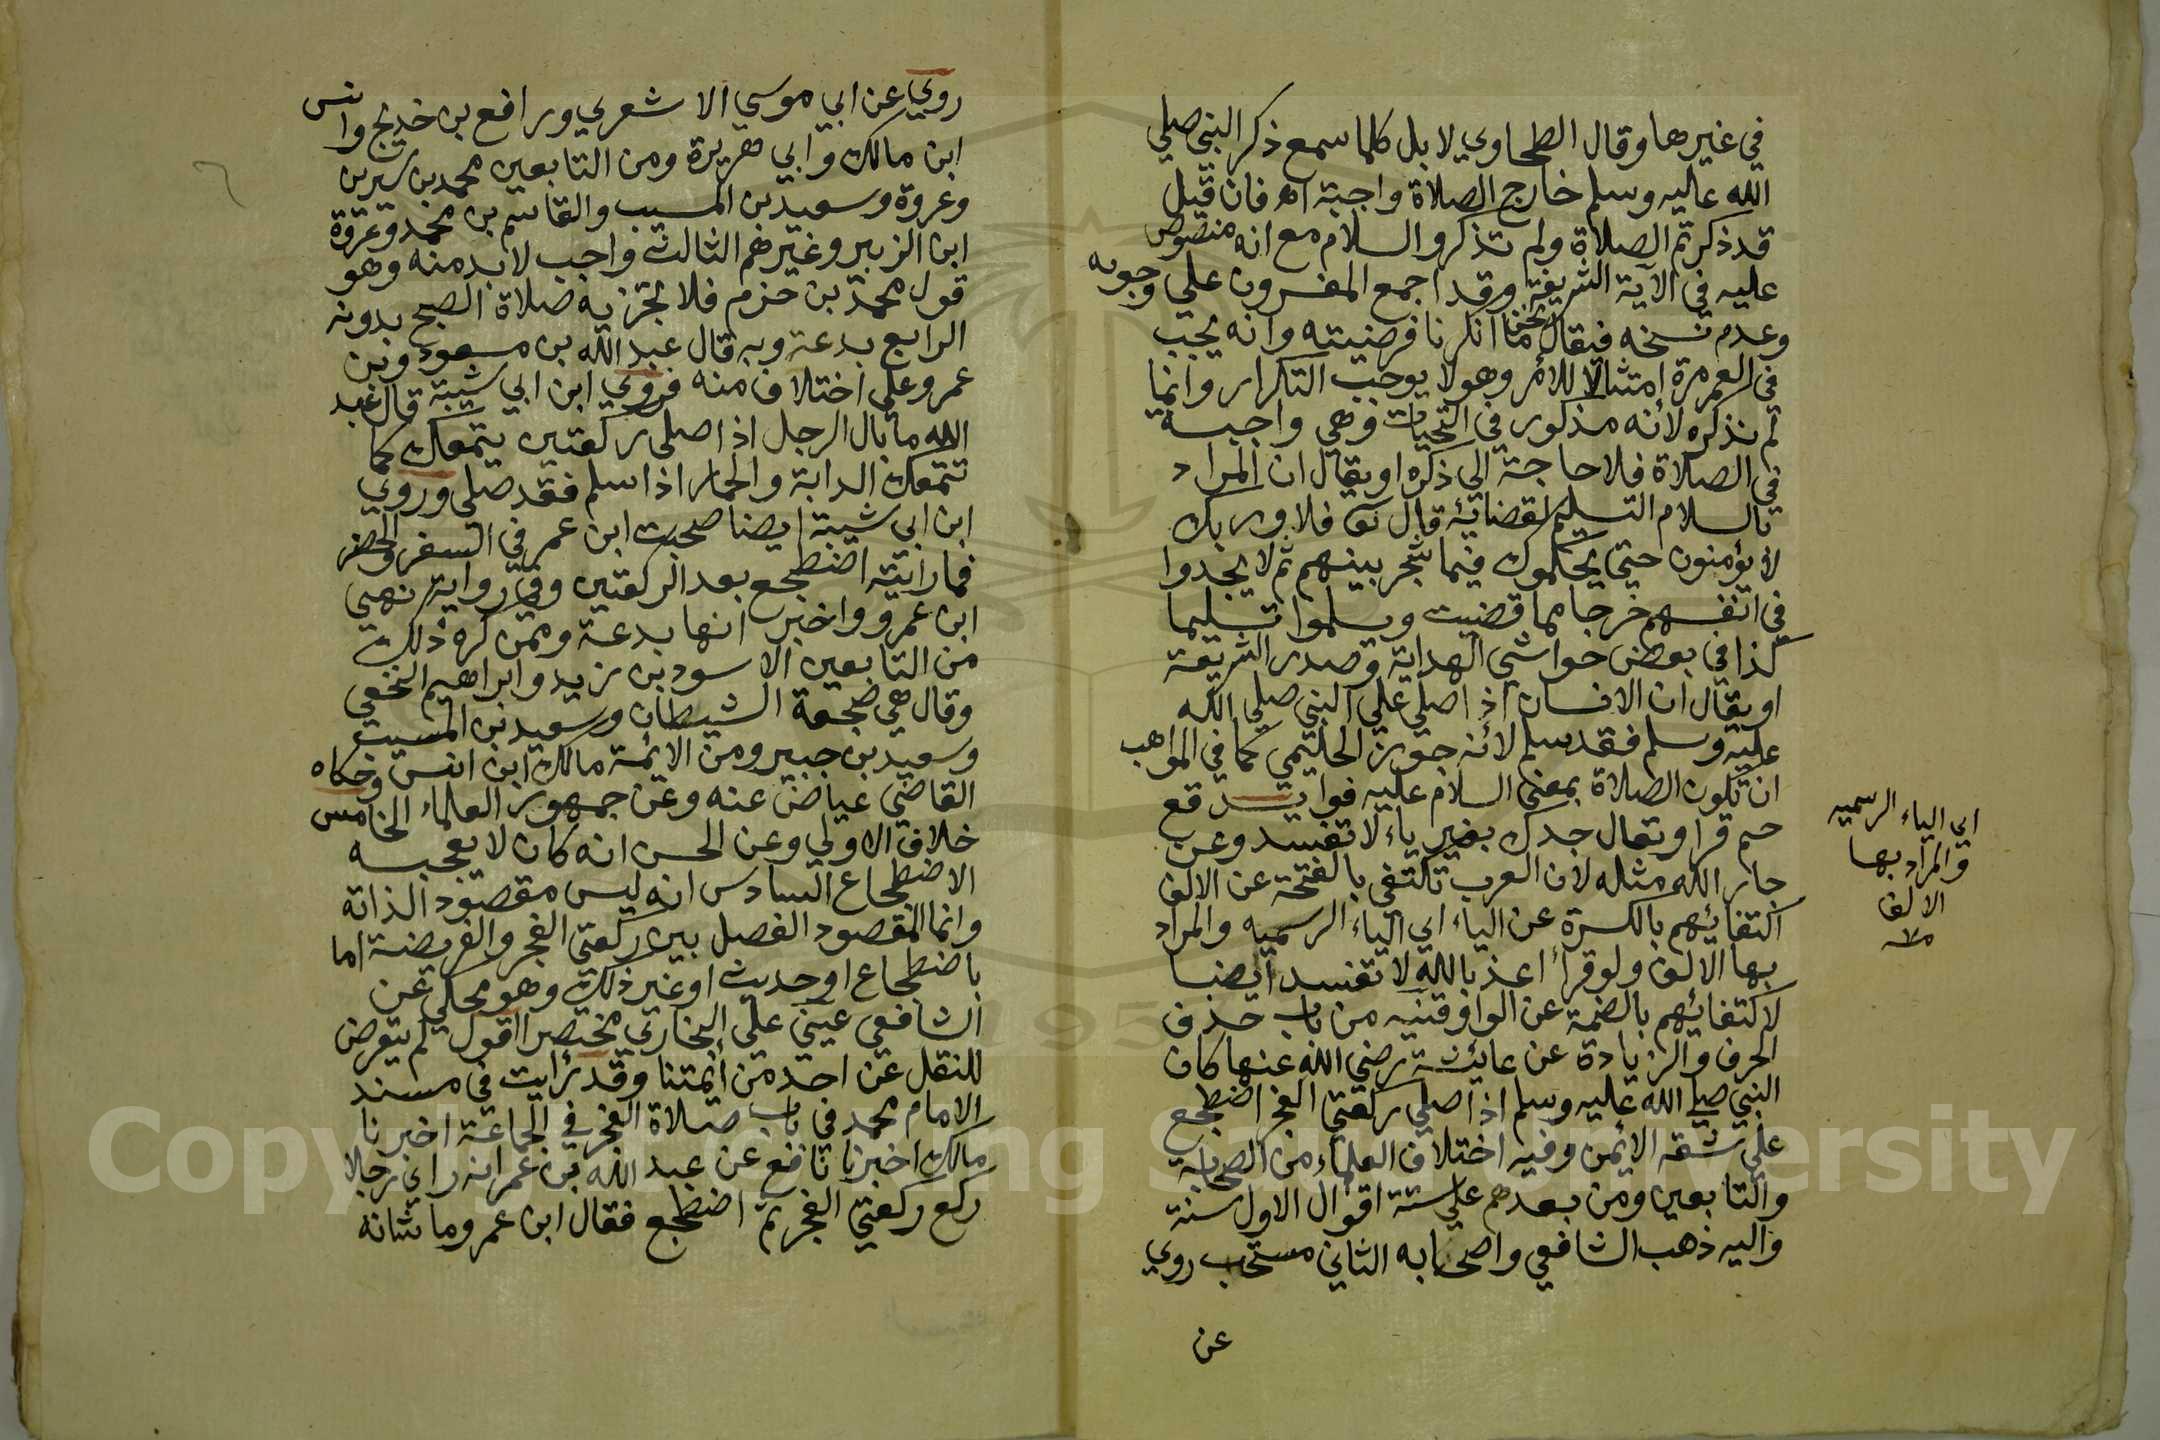 في غيرها وقال الطحاوي لا بل كلما سمع ذكر النبي صلي
الله عليه وسلم خارج الصلاة واجبة اه فان قيل
قد ذكرتم الصلاة ولم تذكروا السلام مع انه منصوص
عليه في الآية الشريفة وقد اجمع المفسرون علي وجوبه
وعدم نسخه فيقال نحن ما انكرنا فرضيته وانه يجب
في العمر مرة امتثالا للأمر وهو لا يوجب التكرار وانما
لم نذكره لأنه مذكور في التحيات وهي واجبة
في الصلاة فلا حاجة الي ذكره او يقال ان المراد
بالسلام التسليم لقضائه قال تعا فلا وربك
لا يؤمنون حتي يحكموك فيما شجر بينهم ثم لا يجدوا
في انفسهم حرجا مما قضيت ويسلموا تسليما
كذا في بعض حواشي الهداية وصدر الشريعة
او يقال ان الانسان اذا صلي علي النبي صلي الله
عليه وسلم فقد سلم لأنه جوز الحليمي كما في المواهب
ان تكون الصلاة بمعني السلام عليه فوايد قع
حم قرا وتعال جدك بغير ياء لا تفسد وعن
جار الله مثله لان العرب تكتفي بالفتحة عن الالف
اكتفائهم بالكسرة عن الياء اي الياء الرسميه والمراد
بها الالف ولو قرأ اعذ بالله لا تفسد أيضا
لاكتفائهم بالضمة عن الواو قنيه من باب حذف
الحرف والزيادة عن عايشة رضي الله عنها كان
النبي صلي الله عليه وسلم اذا صلي ركعتي الفجر اضطجع
علي شقه الايمن وفيه اختلاف العلماء من الصحابة
والتابعين ومن بعدهم علي ستة اقوال الاول سنة
واليه ذهب الشافعي واصحابه الثاني مستحب روي
عن
اي الياء الرسميه
والمراد بها
الالف
روي عن ابي موسي الاشعري ورافع بن خديج وانس
ابن مالك وابي هريرة ومن التابعين محمد بن سيرين
وعروة وسعيد بن المسيب والقاسم بن محمد وعروة
ابن الزبير وغيرهم الثالث واجب لا بد منه وهو
قول محمد بن حزم فلا تجزيه صلاة الصبح بدونه
الرابع بدعة وبه قال عبد الله بن مسعود وبن
عمر وعلي اختلاف منه فروي ابن ابي شيبة قال عبد
الله ما بال الرجل اذا صلي ركعتين يتمعك كما
تتمعك الدابة والحمار اذا سلم فقد صلي وروي
ابن ابي شيبة ايضا صحبت ابن عمر في السفر والحضر
فما رايته اضطجع بعد الركعتين وفي رواية نهي
ابن عمر واخبر انها بدعة وممن كره ذلك
من التابعين الاسود بن زيد وابراهيم النخعي
وقال هي ضجعة الشيطان وسعيد بن المسيب
وسعيد بن جبير ومن الائمة مالك ابن انس وحكاه
القاضي عياض عنه وعن جمهور العلماء الخامس
خلاف الاولي وعن الحسن انه كان لا يعجبه
الاضطجاع السادس انه ليس مقصود الذاته
وانما المقصود الفصل بين ركعتي الفجر والفريضة اما
باضطجاع او حديث او غير ذلك وهو محكي عن
الشافعي عيني علي البخاري مختصرا اقول لم يتعرض
للنقل عن احد من أئمتنا وقد رايت في مسند
الامام محمد في باب صلاة الفجر في الجماعة اخبرنا
مالك اخبرنا نافع عن عبد الله بن عمر انه راي رجلا
ركع ركعتي الفجر ثم اضطجع فقال ابن عمر وما شانه
Copyright © King Saud University